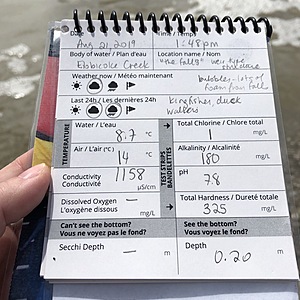 Date Time / Temps
Aug 21, 2019 1:48pm
Body of water / Plan d'eau Location name / Nom
Etobicoke Creek "the falls" weir type structure
Weather now / Météo maintenant
bubbles - lots of foam from fall
Last 24h / Les dernières 24h
kingfisher, duck
walkers
TEMPERATURE
Water / L'eau
8.7 °C
Air / L'air (°C)
14 °C
Conductivity
Conductivité
1158 µS/cm
Dissolved Oxygen
L'oxygène dissous
— mg/L
TEST STRIPS
BANDELETTES
Total Chlorine / Chlore total
1 mg/L
Alkalinity / Alcalinité
180 mg/L
pH
7.8
Total Hardness / Dureté totale
325 mg/L
Can't see the bottom?
Vous ne voyez pas le fond?
Secchi Depth
— m
See the bottom?
Vous voyez le fond?
Depth
0.20 m